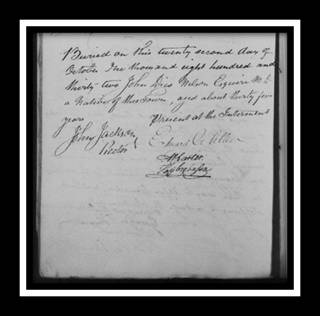 Buried on this twenty second day of
October One thousand eight hundred and
thirty two John Nelson Esquire
a Native of this Town, and about thirty
years Present at the Interment
John Jackson
Rector